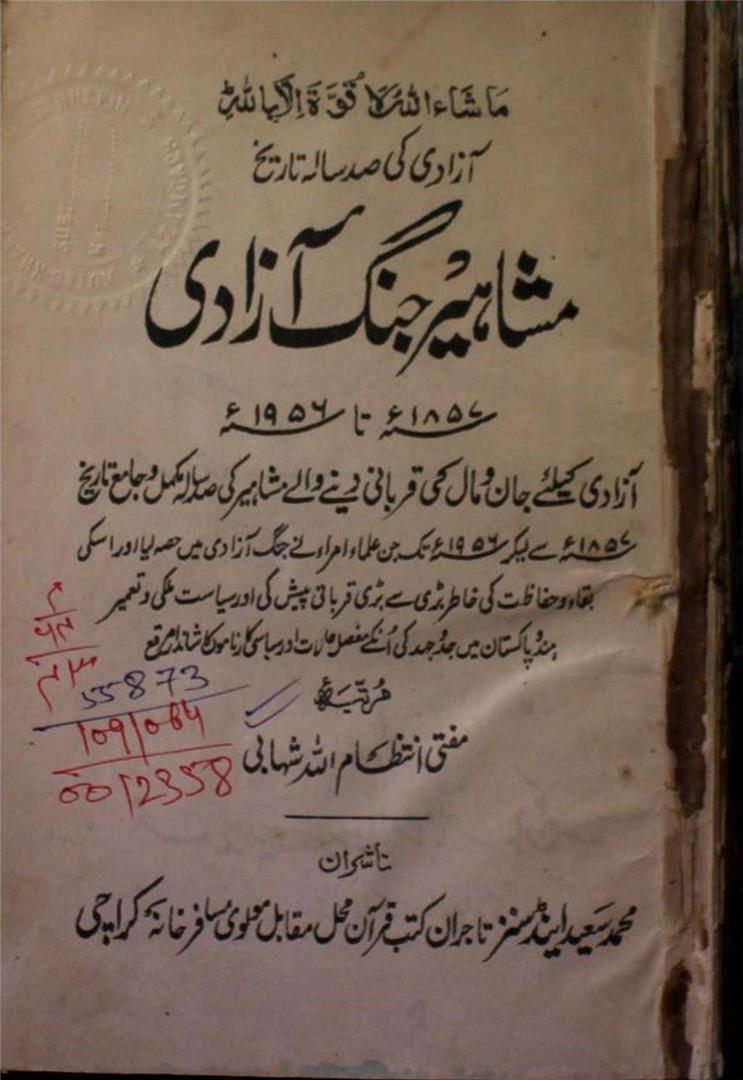 ماشاء اللہ لا قوۃ الا باللہ
آزادی کی صد سالہ تاریخ
مشاہیر جنگ آزادی
۱۸۵۷ء تا ۱۹۵۶ء
آزادی کیلئے جان و مال کی قربانی دینے والے مشاہیر کی صد سالہ مکمل و جامع تاریخ
۱۸۵۷ء سے لیکر ۱۹۵۶ء تک جن علماء امراء نے جنگ آزادی میں حصہ لیا اور اسکی
بقاء و حفاظت کی خاطر بڑی سے بڑی قربانی پیش کی اور سیاست ملکی و تعمیر
ہند و پاکستان میں جدوجہد کی اُنکے مفصل حالات اور سیاسی کارناموں کا شاندار مرقع
55873
109/064
0012358
مرتبہ
مفتی انتظام اللہ شہابی
ناشران
محمد سعید اینڈ سنز تاجران کتب قرآن محل مقابل مولوی مسافر خانہ کراچی